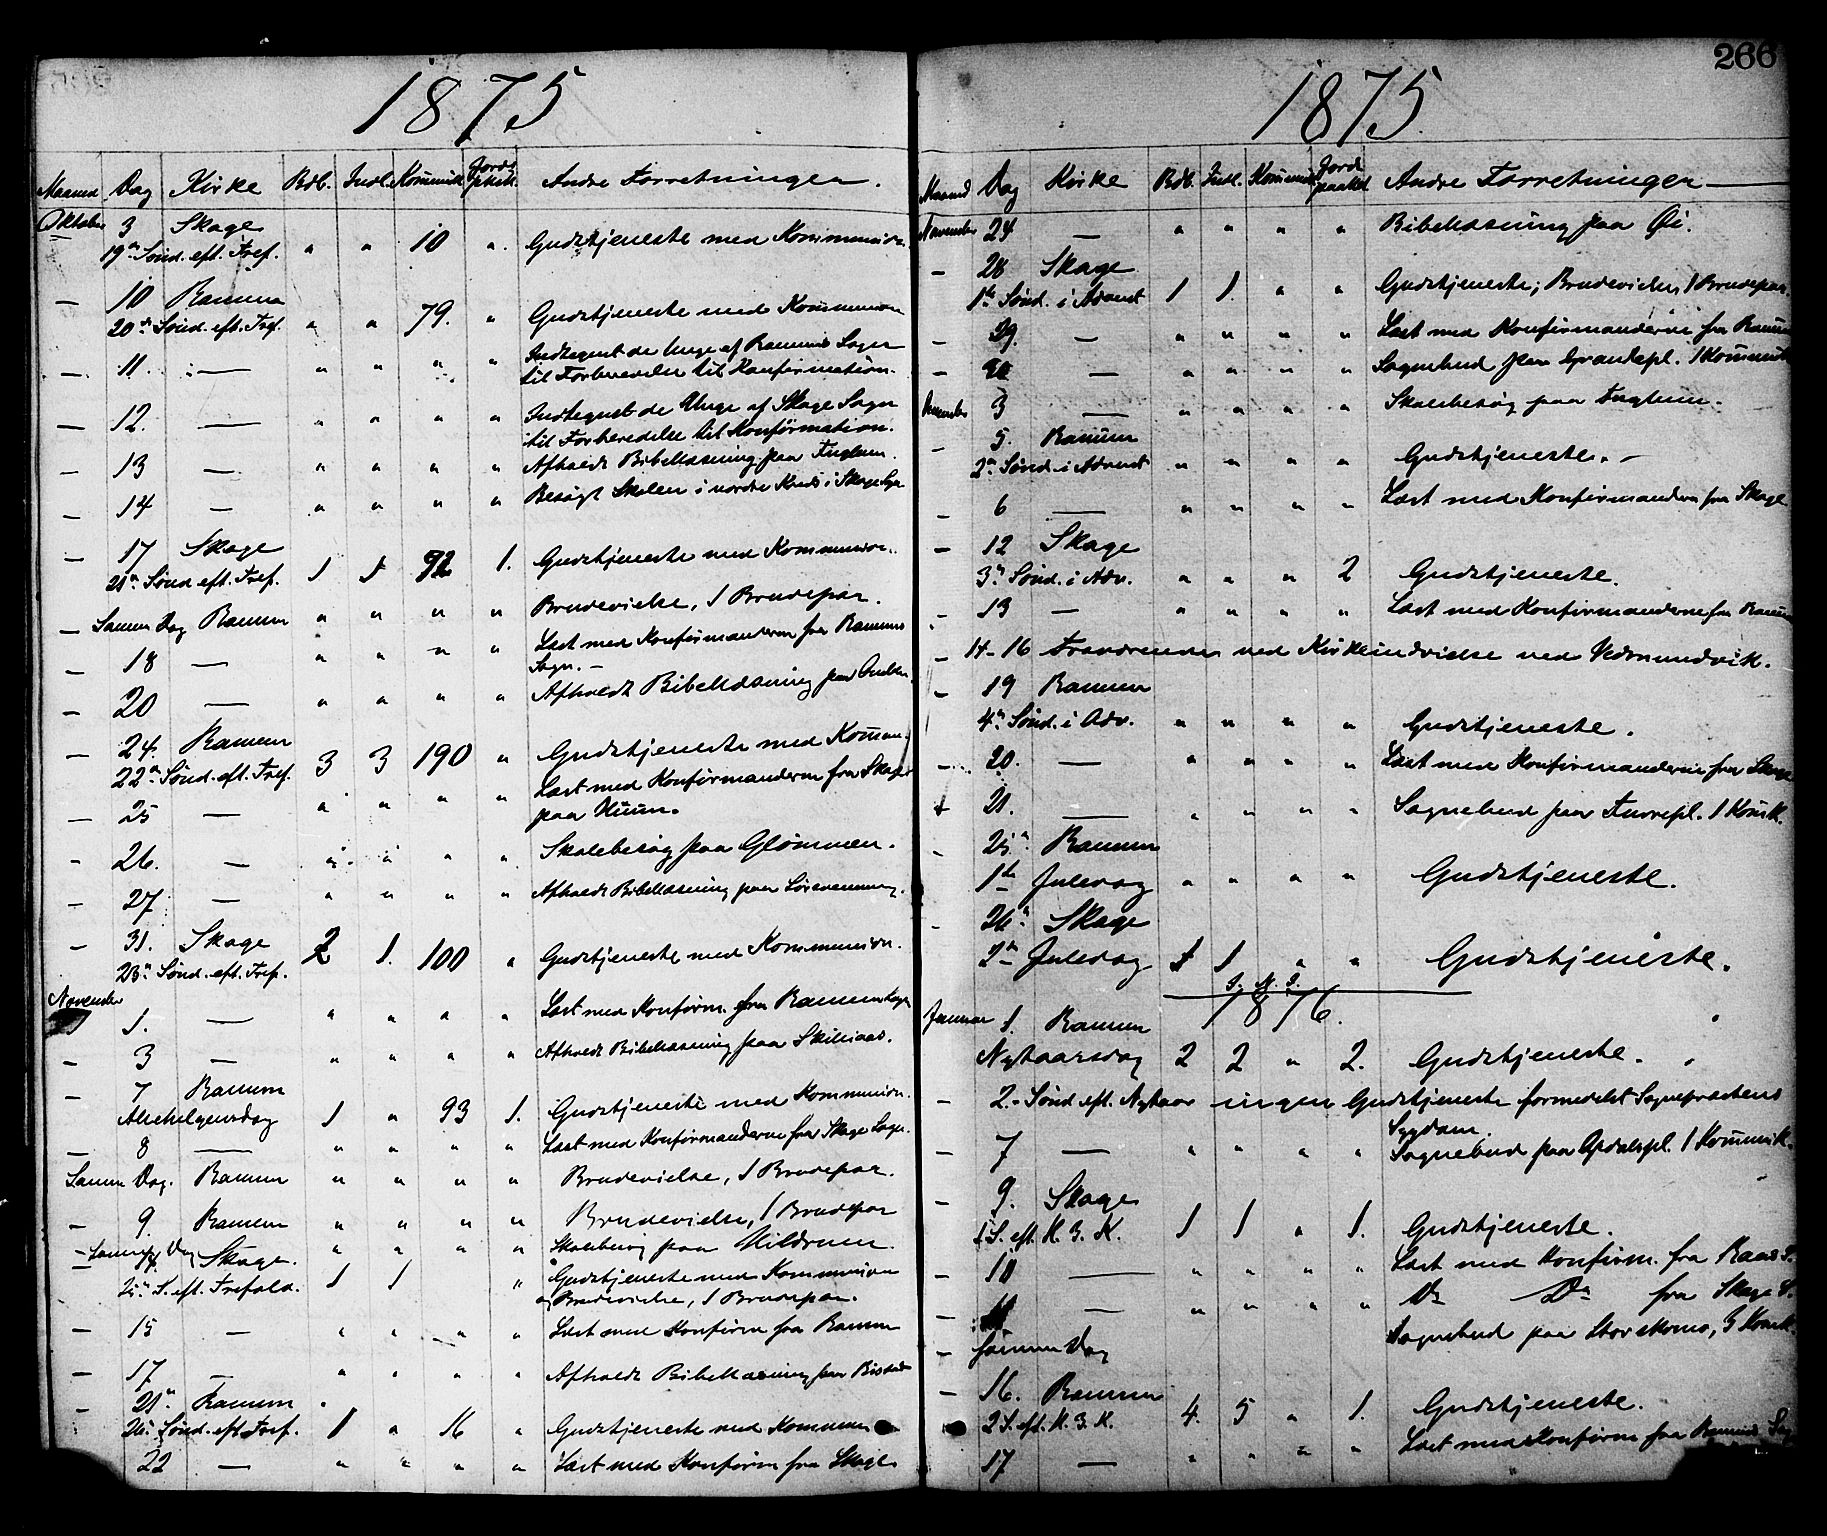 1875
Maaned Dag Kirke Rdb. Indl. Kommunik. Jords paak.
Andre Forretninger.
Oktober 3 Skage
19n Sønd. eft. Tref. " " 10 " Gudstjeneste med Kommunion.
— 10 Ranum
20n Sønd. eft. Tref. " " 79. " Gudstjeneste med Kommunion
— 11. — " " " " Indtegnet de Unge af Ranums Sogn
til Forberedelse til Konfirmation.
— 12. — " " " " Indtegnet de Unge af Skage Sogn
til Forberedelse til Konfirmation.
— 13 — " " " " Afholdt Bibellæsning paa Fuglem.
— 14 — " " " " Besøgt Skolen i nordre Kreds i Skage Sogn
— 17 Skage
21n Sønd. eft. Tref. 1 1 92 1. Gudstjeneste med Kommunion.
— Samme Dag Ranum " " " " Brudevielse, 1 Brudepar.
— 18 — " " " " Læst med Konfirmanderne fra Ranums
Sogn. —
— 20 — " " " " Afholdt Bibellæsning paa
— 24. Ranum
22n Sønd. eft. Tref. 3 3 190 " Gudstjeneste med Kommun.
— 25 — " " " " Læst med Konfirmanderne fra Skage
paa Huun.
— 26. — " " " " Skolebesøg paa Glømmen.
— 27 — " " " " Afholdt Bibellæsning paa
— 31. Skage
23n Sønd. eft. Tref. 2 1. 100 " Gudstjeneste med Kommunion.
November 1. — " " " " Læst med Konfirm. fra Ranum Sogn
— 3 — " " " " Afholdt Bibellæsning paa
— 7 Ranum
Allehelgensdag 1 " 93 1. Gudstjeneste med Kommunion.
— 8 — " " " " Læst med Konfirmanderne fra Skage Sogn.
Samme Dag. Ranum " " " " Brudevielse, 1 Brudepar.
— 9. Ranum " " " " Brudevielse, 1 Brudepar
— Samme Dag " " " " Skolebesøg paa Hildrum.
— 14. Skage.
25n S. eft. Trefold. 1 1 " Gudstjeneste med Kommunion
og Brudevielse, 1 Brudepar.
— 15 — " " " " Læst med Konfirm fra Ranum
— 17 — " " " " Afholdt Bibellæsning paa
— 21n Ranum
26n Sønd. eft. Tref. 1 " 16 " Gudstjeneste med Kommun
22 — " " " " Læst med Konfirm fra Skage
266
1875.
Maaned Dag Kirke Rdb. Indl. Kommunik Jord paakst. Andre Forretninger —
November 24 — " " " " Bibellæsning paa Øi.
— 28 Skage
1te Sønd. i Advent 1 1. " " Gudstjeneste; Brudevielse, 1 Brudepar.
— 29. — " " " " Læst med Konfirmanderne fra Ranum
— 30 — " " " " Sognebud paa 1 Kommunik
December 3 — " " " " Skolebesøg paa Fuglem.
— 5. Ranum
2n Sønd. i Advent " " " " Gudstjeneste. —
— 6 — " " " " Læst med Konfirmanderne fra Skage
— 12 Skage
3n Sønd. i Adv. " " " 2 Gudstjeneste.
— 13 — " " " " Læst med Konfirmanderne fra Ranum
— 14-16 Fraværende ved Kirkeindvielse ved Vedmundvik.
— 19 Ranum
4n Sønd. i Adv. " " " " Gudstjeneste.
— 20. — " " " " Læst med Konfirmanderne fra Skage
21. — " " " " Sognebud paa 1 Komk.
— 25n Ranum
1te Juledag " " " " Gudstjeneste.
— 26n Skage
2n Juledag 1 1 " " Gudstjeneste.
I. N. I.
1876.
Januar 1. Ranum
Nytaarsdag 2 2 " 2. Gudstjeneste.
— 2. Sønd. eft. Nytaar ingen Gudstjeneste formedelst Sognepræstens
Sygdom.
— 7 — " " " " Sognebud paa 1 Kommunik.
— 9. Skage
1 S. eft. H. 3. K. 1 1 " 1. Gudstjeneste.
— 10 — " " " " Læst med Konfirm. fra
— 11 — " " " " Do Do fra Skage S.
— Samme Dag Sognebud paa 3 Komk.
— 16. Ranum
2 S. eft. H. 3. K. 4. 5 " 1. Gudstjeneste.
17 — " " " " Læst med Konfirm fra Ranums Sog